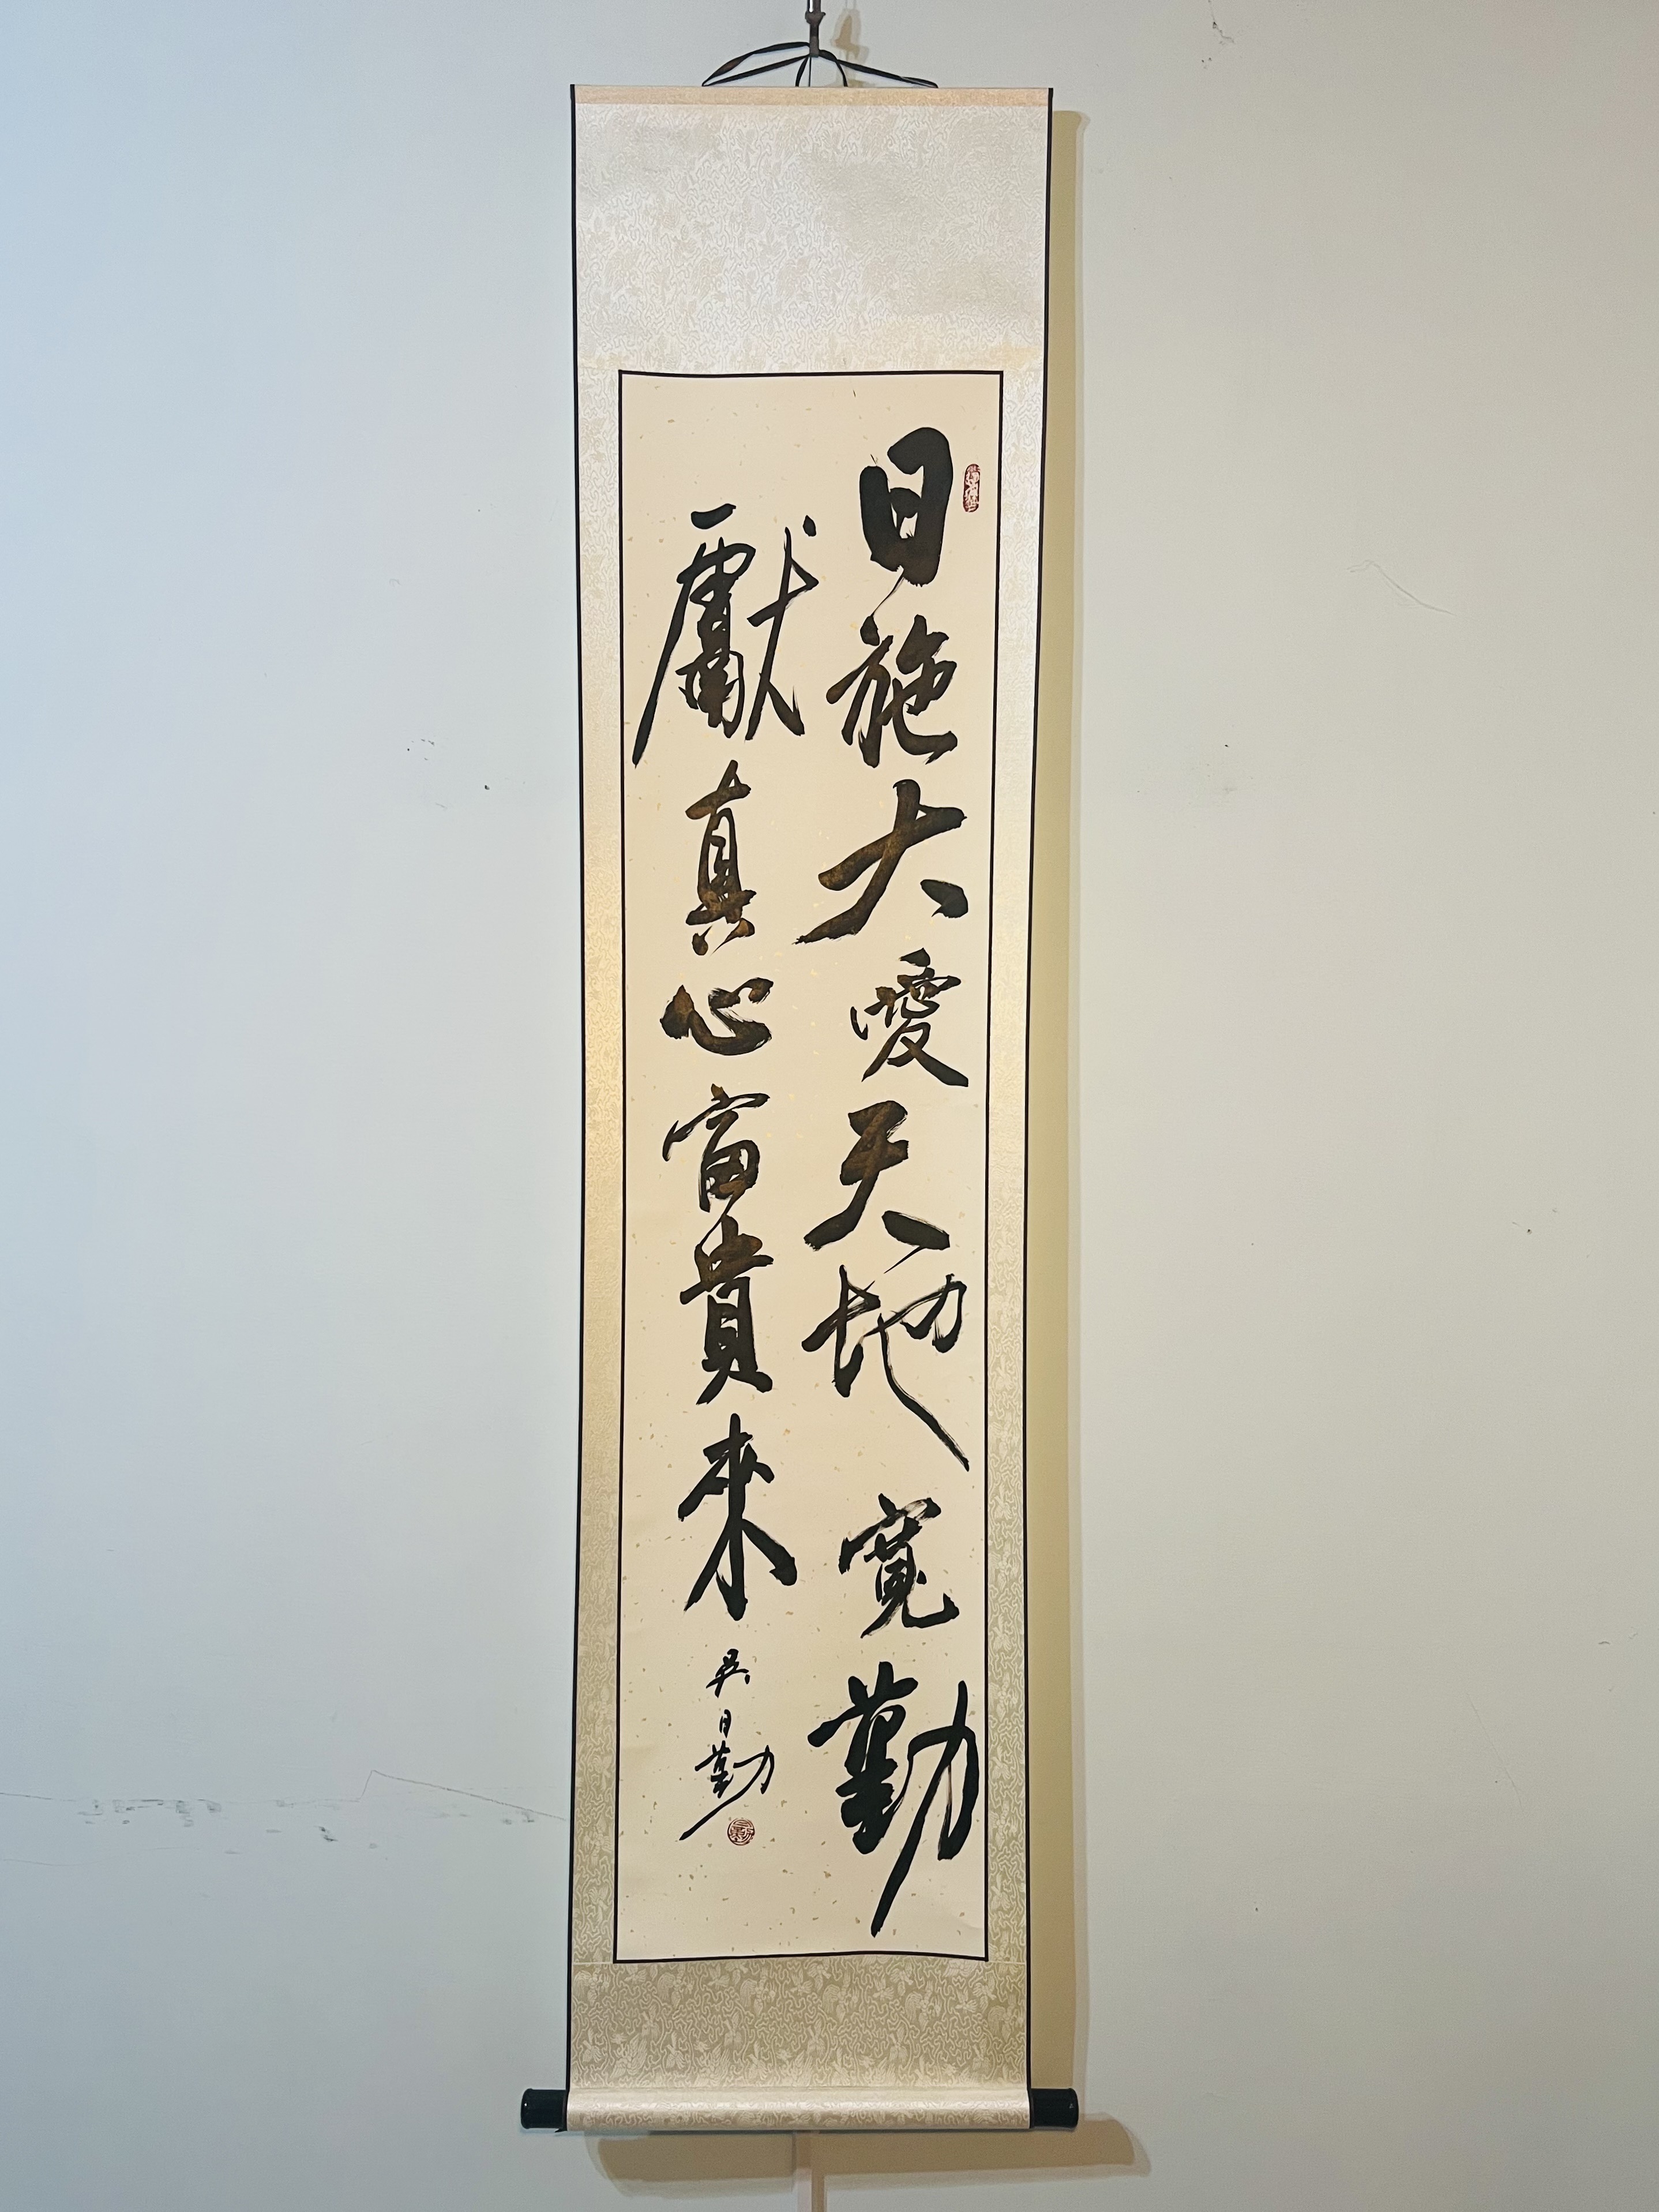 日施大愛天地寬勤
獻真心富貴來
吳日勤